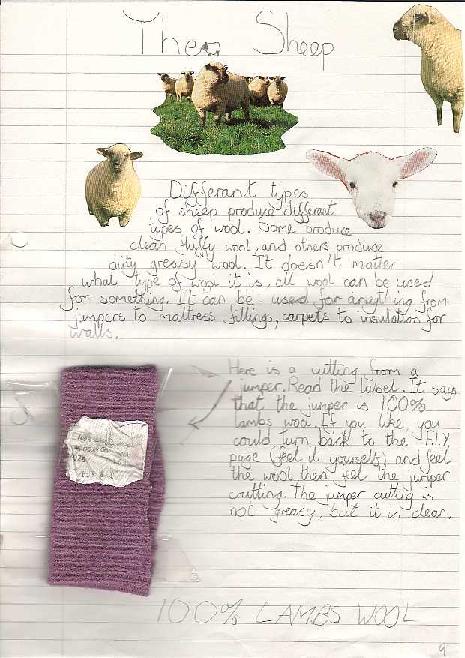 The Sheep
Differant types
of sheep produce different
types of wool. Some produce
clean fluffy wool, and others produce
dirty greasy wool. It doesn't matter
what type of wool it is, all wool can be used
for something. It can be used for anything from
jumpers to mattress fillings, carpets to insulation for
walls.
Here is a cutting from a
jumper. Read the label. It says
that the jumper is 100%
lambs wool. If you like, you
could turn back to the F.I.Y
page (feel it yourself) and feel
the wool then feel the jumper
cutting. The jumper cutting is
not greasy, but it is clean.
100% LAMBS WOOL
9